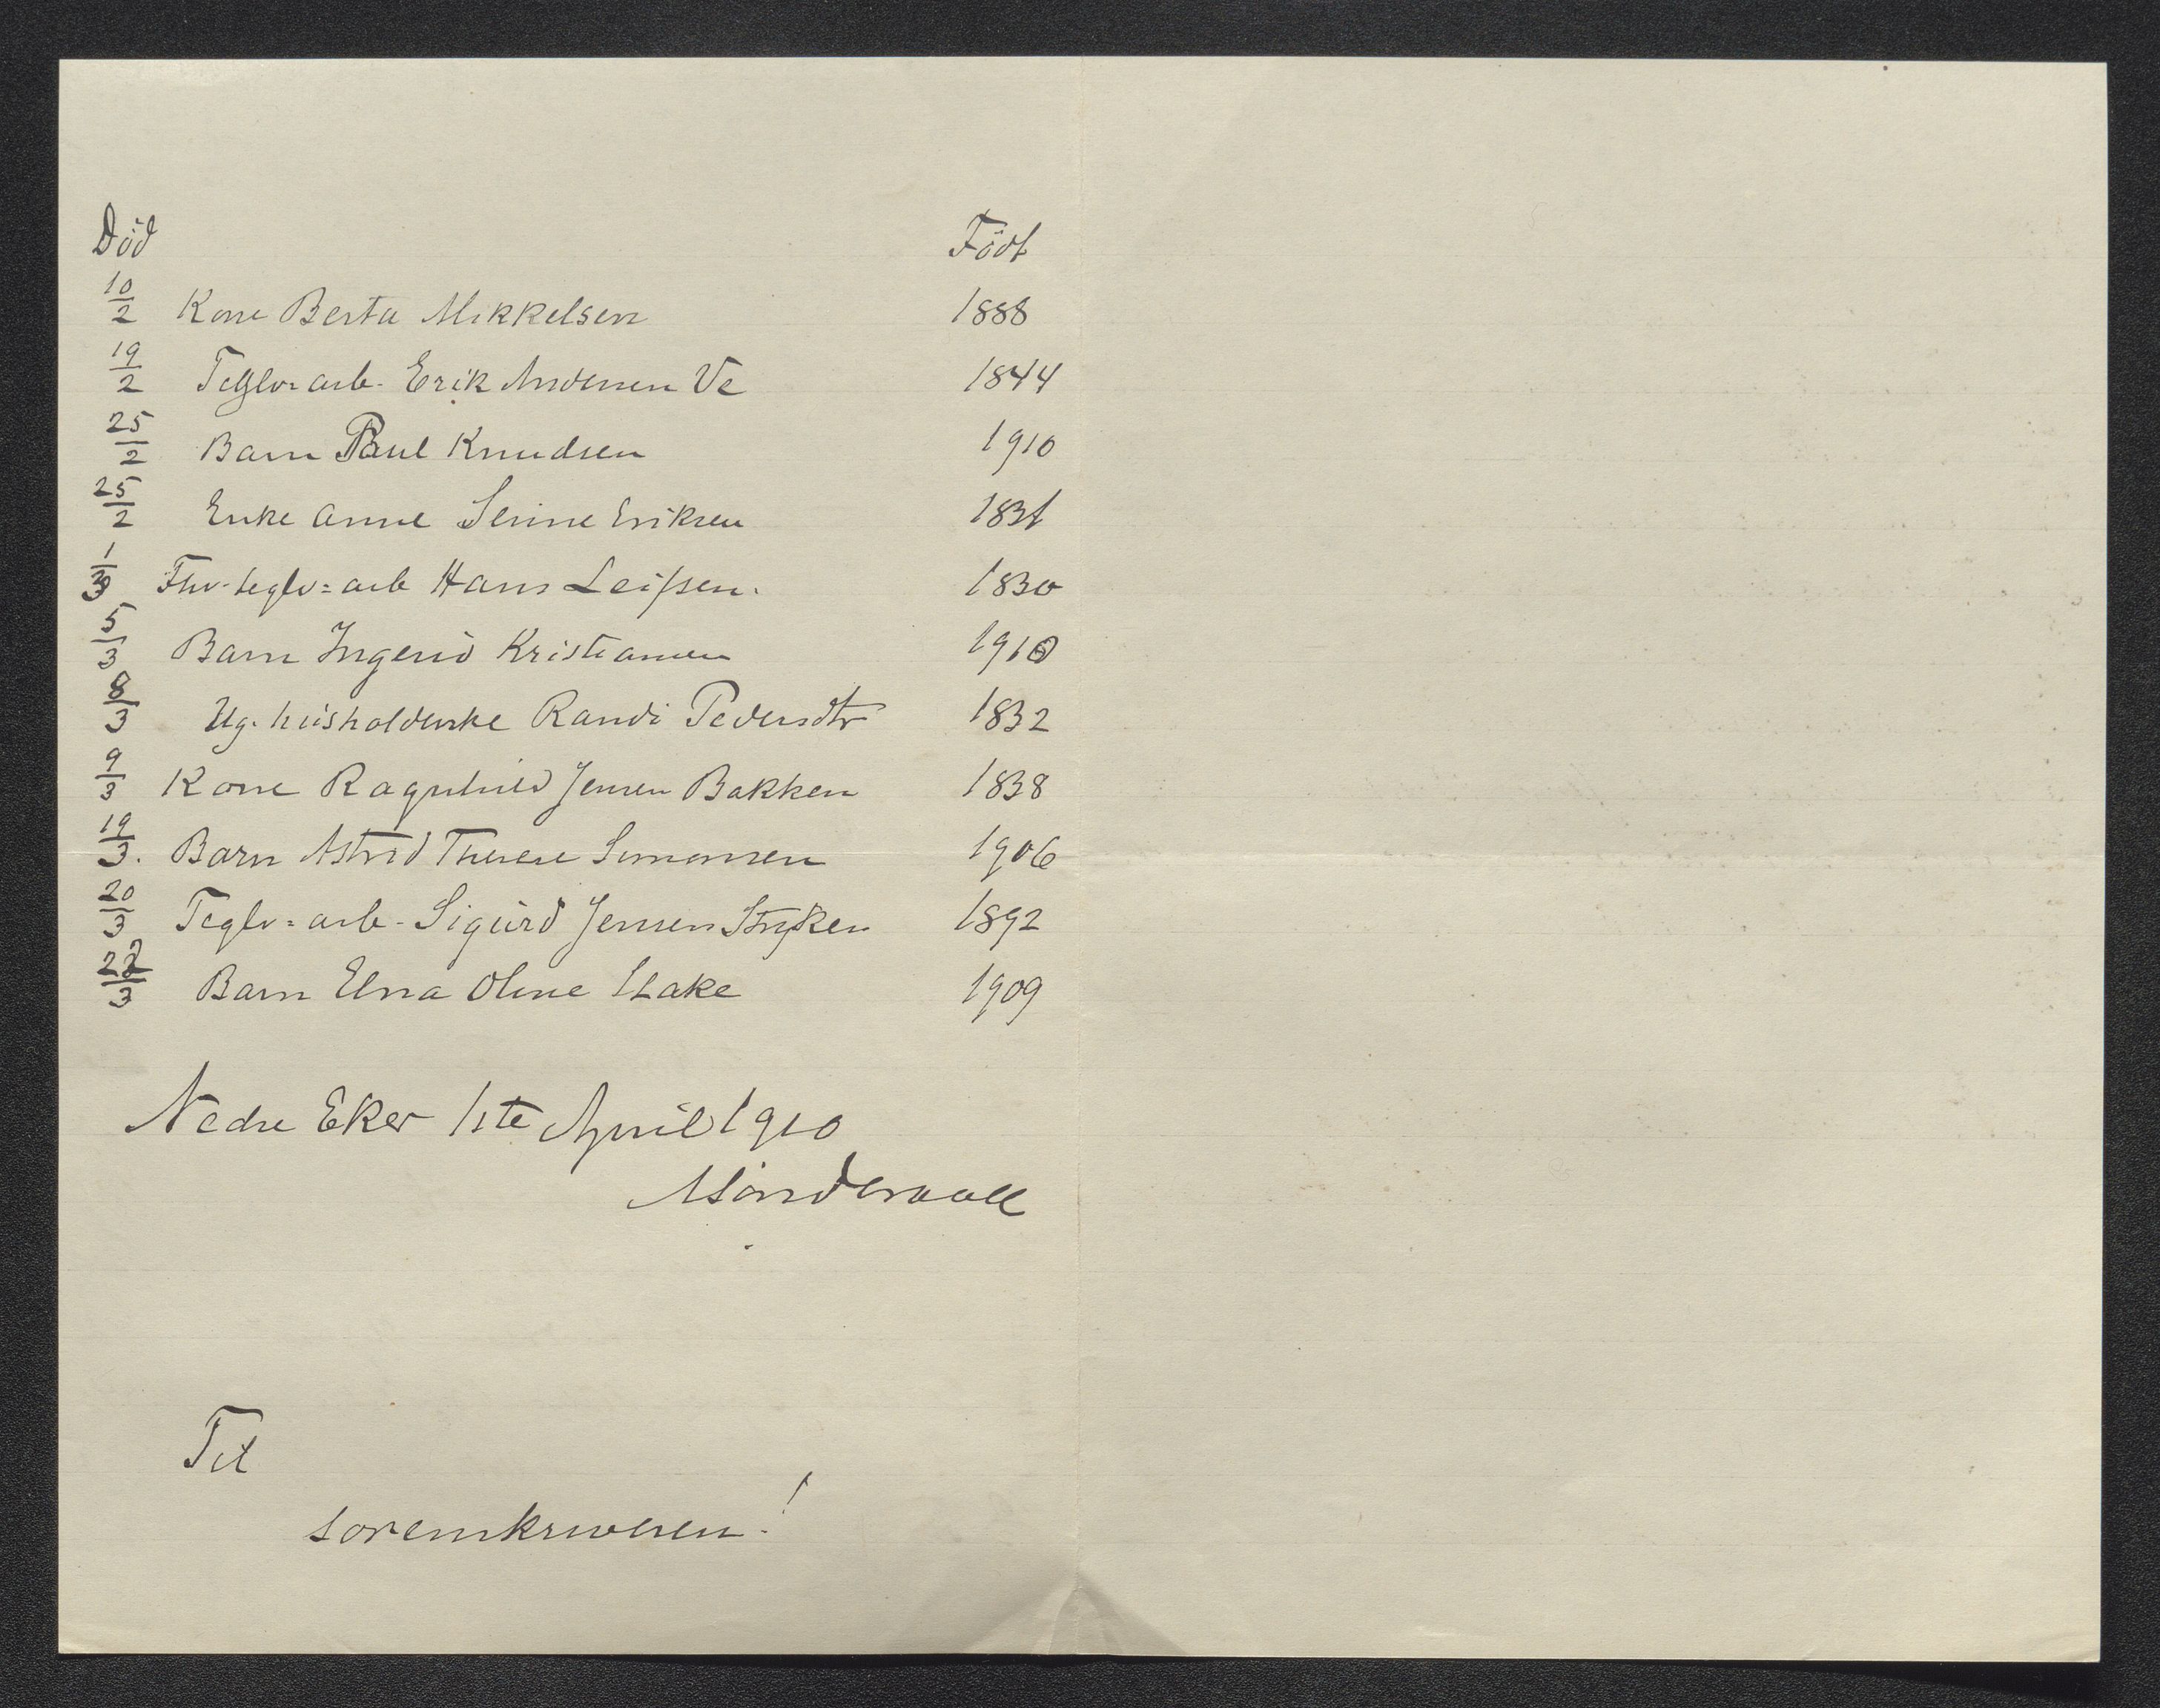 Död Födt
10/2 Kone Berta Mikkelsen 1888
19/2 Teglv=arb. Erik Andersen Ve 1844
25/2 Barn Paul Knudsen 1910
25/2 Enke Anne Serine Eriksen 183
1/3 Fhv. teglv=arb Hans Leifsen. 1830
5/3 Barn Ingerid Kristiansen 1910
8/3 Ug. husholderske Randi Pedersdtr 1832
9/3 Kone Ragnhild Jensen Bakken 1838
19/3. Barn Astrid Therese Simonsen 1906
20/3 Teglv=arb. Sigurd Jensen Stryken 1892
22/3 Barn Elna Oline Stake 1909
Nedre Eker 1ste April 1910
Til
sorenskriveren!